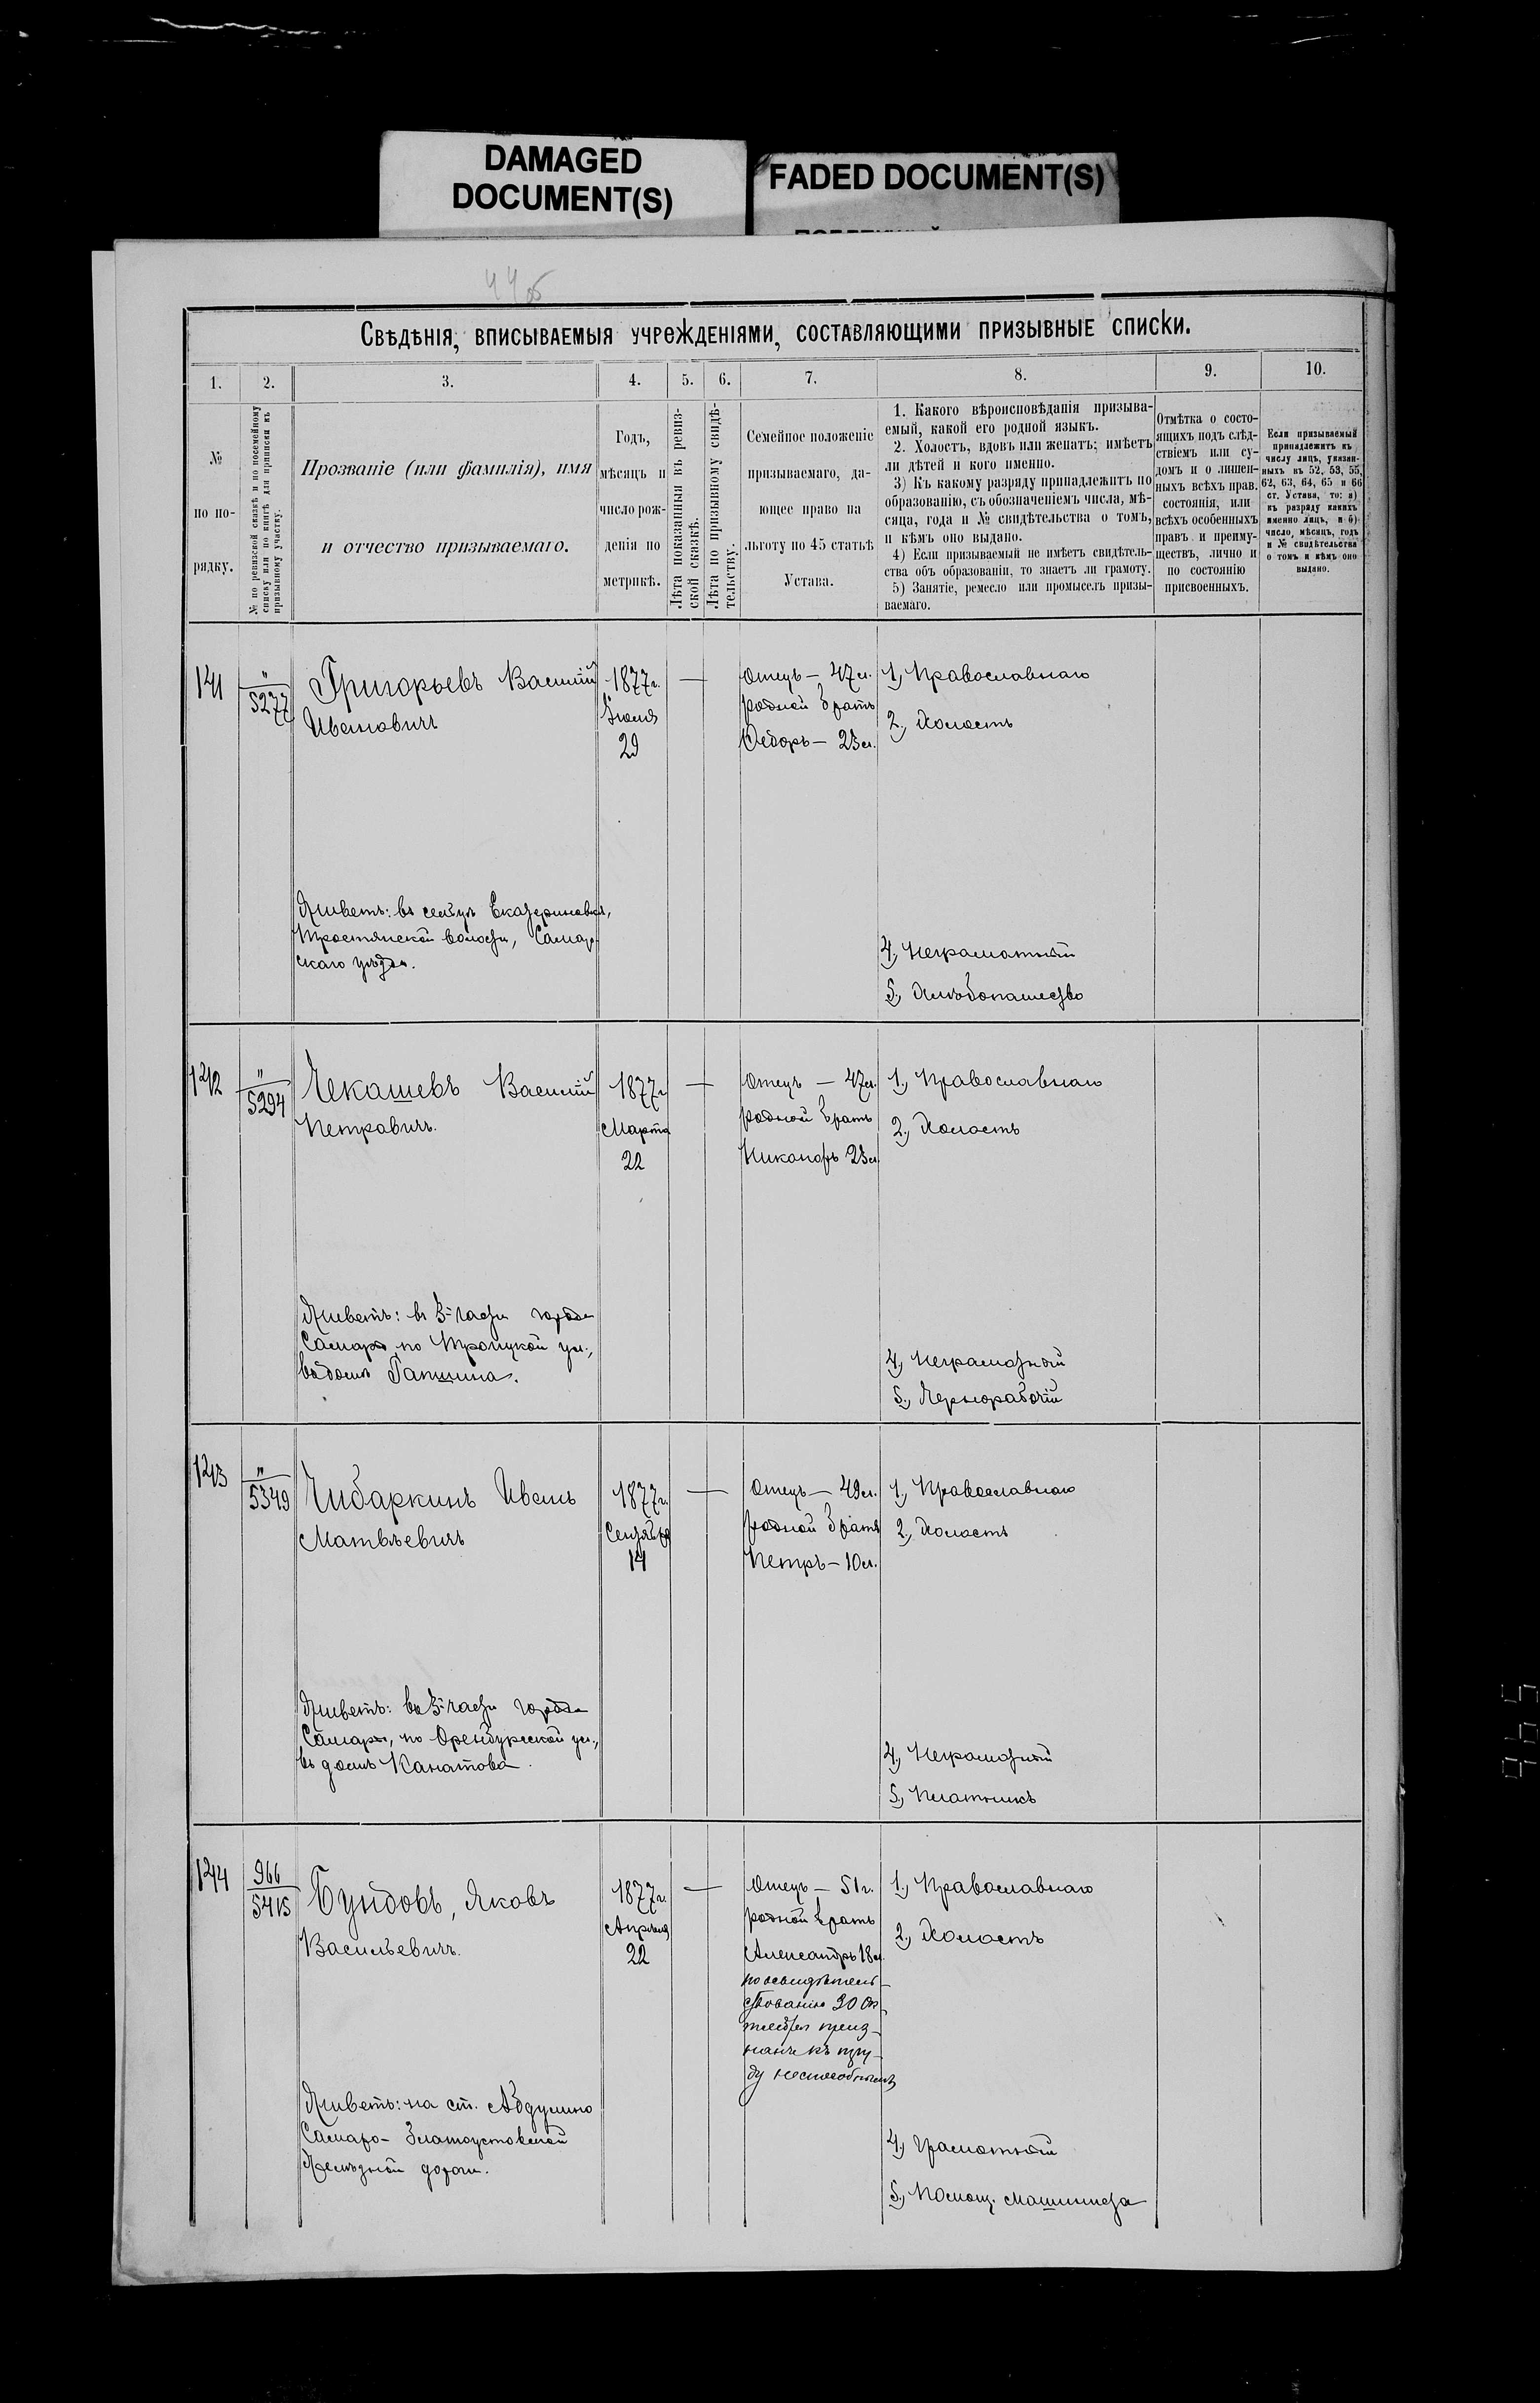 DAMAGED
DOCUMENT(S)
FADED DOCUMENT(S)
44об
Свѣдѣнія, вписываемыя учрежденіями, составляющими призывные списки.
1. 2. 3. 4. 5. 6. 7. 8. 9. 10.
№
по по-
рядку.
№ по ревизской сказкѣ и по посемейному
списку или по книгѣ для приписки къ
призывному участку.
Прозваніе (или фамилія), имя
и отчество призываемаго.
Годъ,
мѣсяцъ и
число рож-
денія по
метрикѣ.
Лѣта показанныя въ ревиз-
ской сказкѣ.
Лѣта по призывному свидѣ-
тельству.
Семейное положеніе
призываемаго, да-
ющее право на
льготу по 45 статьѣ
Устава.
1. Какого вѣроисповѣданія призыва-
емый, какой его родной языкъ.
2. Холостъ, вдовъ или женатъ; имѣетъ
ли дѣтей и кого именно.
3) Къ какому разряду принадлежитъ по
образованію, съ обозначеніемъ числа, мѣ-
сяца, года и № свидѣтельства о томъ,
и кѣмъ оно выдано.
4) Если призываемый не имѣетъ свидѣтель-
ства объ образованіи, то знаетъ ли грамоту.
5) Занятіе, ремесло или промыселъ призы-
ваемаго.
Отмѣтка о состо-
ящихъ подъ слѣд-
ствіемъ или су-
домъ и о лишен-
ныхъ всѣхъ прав.
состоянія, или
всѣхъ особенныхъ
правъ и преиму-
ществъ, лично и
по состоянію
присвоенныхъ.
Если призываемый
принадлежитъ къ
числу лицъ, указан-
ныхъ въ 52, 53, 55,
62, 63, 64, 65 и 66
ст. Устава, то: а)
къ разряду какихъ
именно лицъ, и б)
число, мѣсяцъ, годъ
и № свидѣтельства
о томъ и кѣмъ оно
выдано.
141
"
5277
Григорьевъ Василій
Ивановичъ
1877 г.
Іюля
29
—
Отецъ — 47 л.
родной братъ
Ѳедоръ — 23 л.
1, Православнаго
2, Холостъ
Живетъ: въ сельцѣ Екатериновкѣ,
Тростянской волости, Самар-
скаго уѣзда.
4, Неграмотный
5, Хлѣбопашество
142
"
5294
Чекашевъ Василій
Петровичъ.
1877 г.
Марта
22
—
Отецъ — 47 л.
родной братъ
Никаноръ 23 л.
1, Православнаго
2, Холостъ
Живетъ: въ 3-й части города
Самары по Троицкой ул.,
въ домѣ Гапшина.
4, Неграмотный
5, Чернорабочій
143
"
5349
Чибаркинъ Иванъ
Матвѣевичъ
1877 г.
Сентября
14
—
Отецъ — 49 л.
родной братъ
Петръ — 10 л.
1, Православнаго
2, Холостъ
Живетъ: въ 3-й части города
Самары, по Оренбургской ул.,
въ домѣ Канатова.
4, Неграмотный
5, Плотникъ
144
966
5415
Бундовъ, Яковъ
Васильевичъ.
1877 г.
Апрѣля
22
—
Отецъ — 51 г.
родной братъ
Александръ 18 л.
по освидѣтель-
ствованію 30 Ок-
тября приз-
нанъ къ тру-
ду неспособнымъ
1, Православнаго
2, Холостъ
Живетъ: на ст. Абдулино
Самаро-Златоустовской
Желѣзной дороги.
4, Грамотный
5, Помощ. машиниста
965